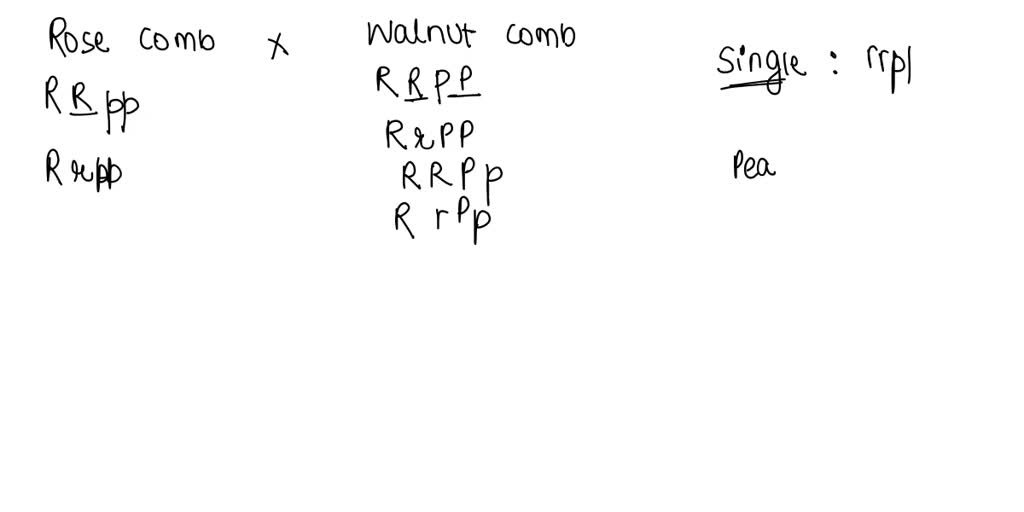 Rose comb x Walnut comb
RRpp
RRPP
Single : rrpl
RrPP
Rrpp
RRPp
Pea
RrPp